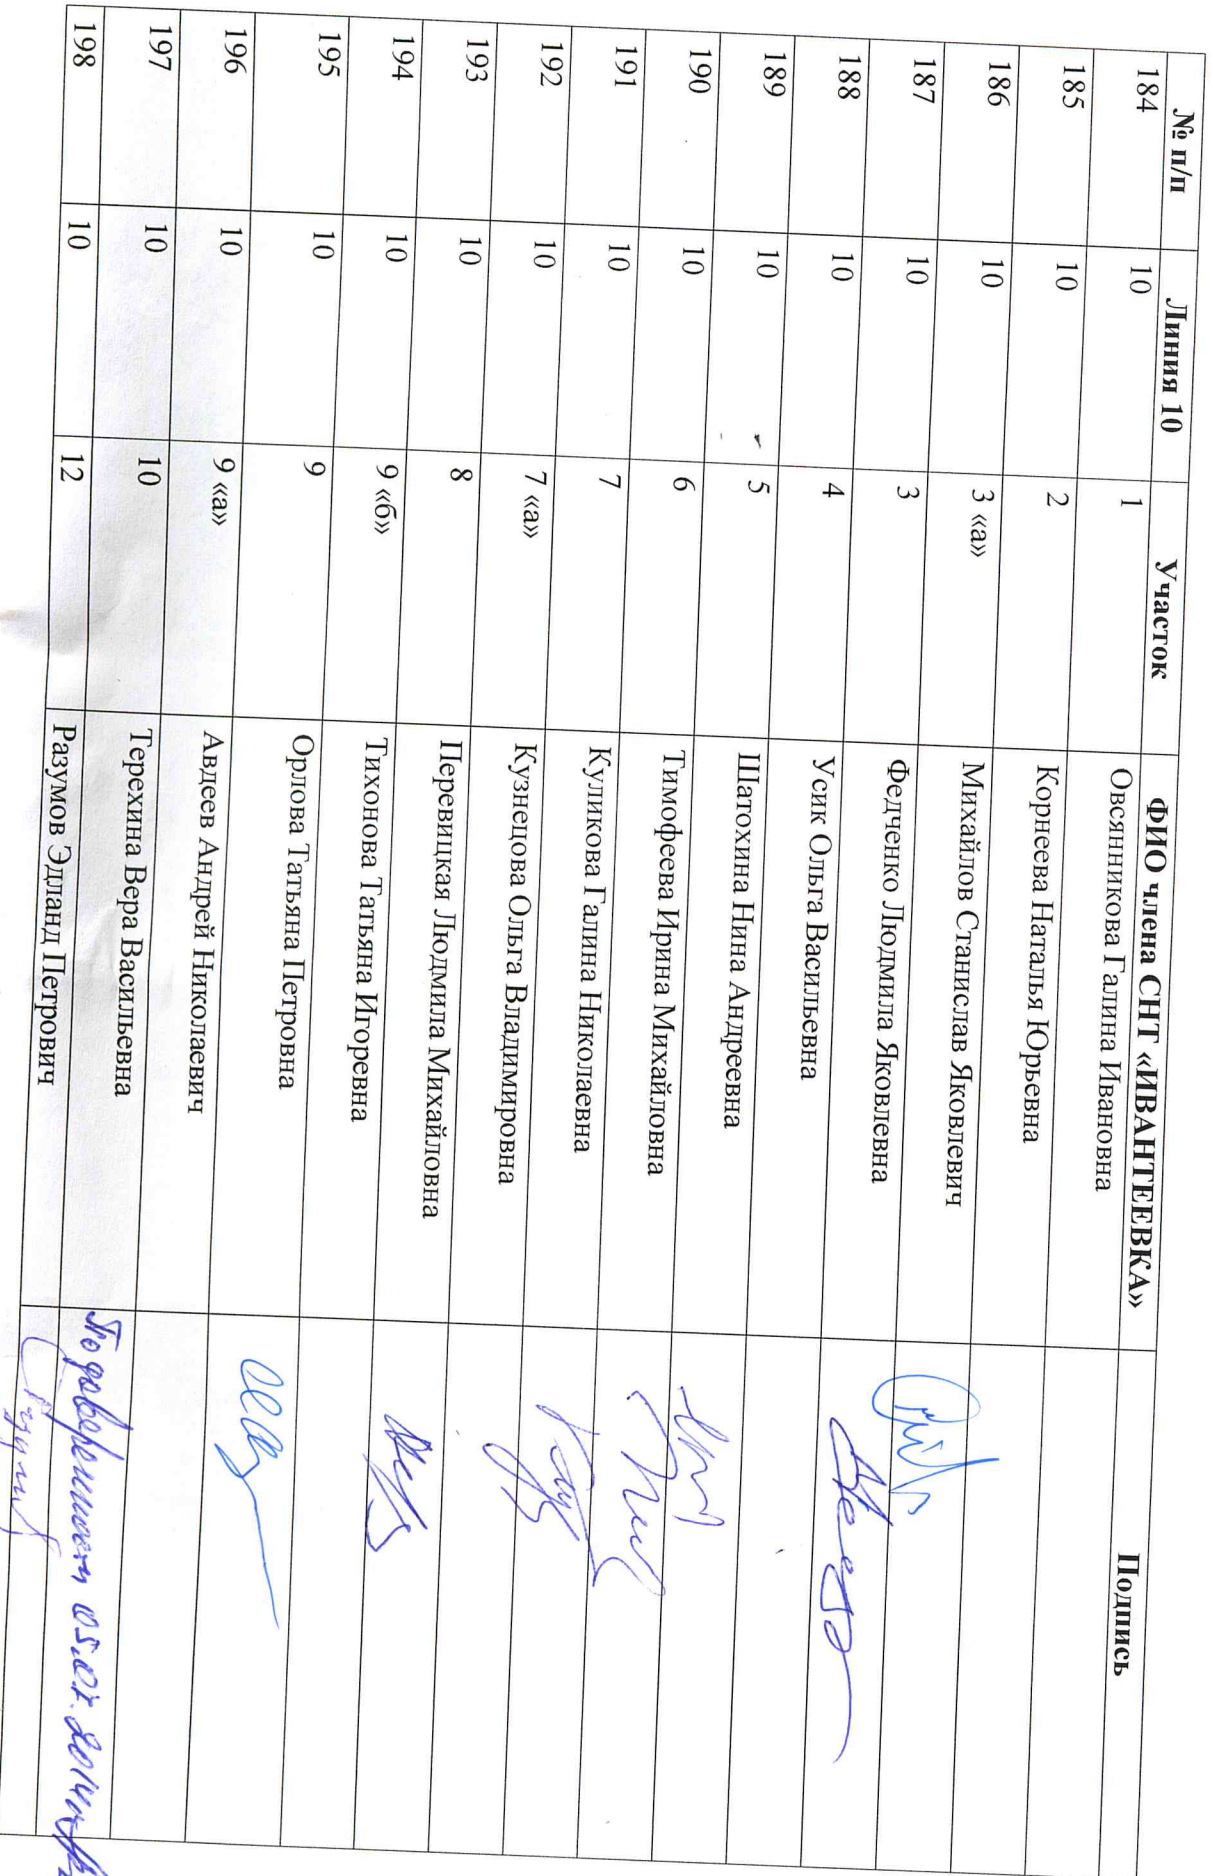 № п/п Линия 10 Участок ФИО члена СНТ «ИВАНТЕЕВКА» Подпись
184 10 1 Овсянникова Галина Ивановна
185 10 2 Корнеева Наталья Юрьевна
186 10 3 «а» Михайлов Станислав Яковлевич
187 10 3 Федченко Людмила Яковлевна
188 10 4 Усик Ольга Васильевна
189 10 5 Шатохина Нина Андреевна
190 10 6 Тимофеева Ирина Михайловна
191 10 7 Куликова Галина Николаевна
192 10 7 «а» Кузнецова Ольга Владимировна
193 10 8 Перевицкая Людмила Михайловна
194 10 9 «б» Тихонова Татьяна Игоревна
195 10 9 Орлова Татьяна Петровна
196 10 9 «а» Авдеев Андрей Николаевич
197 10 10 Терехина Вера Васильевна
198 10 12 Разумов Эдланд Петрович По доверенности